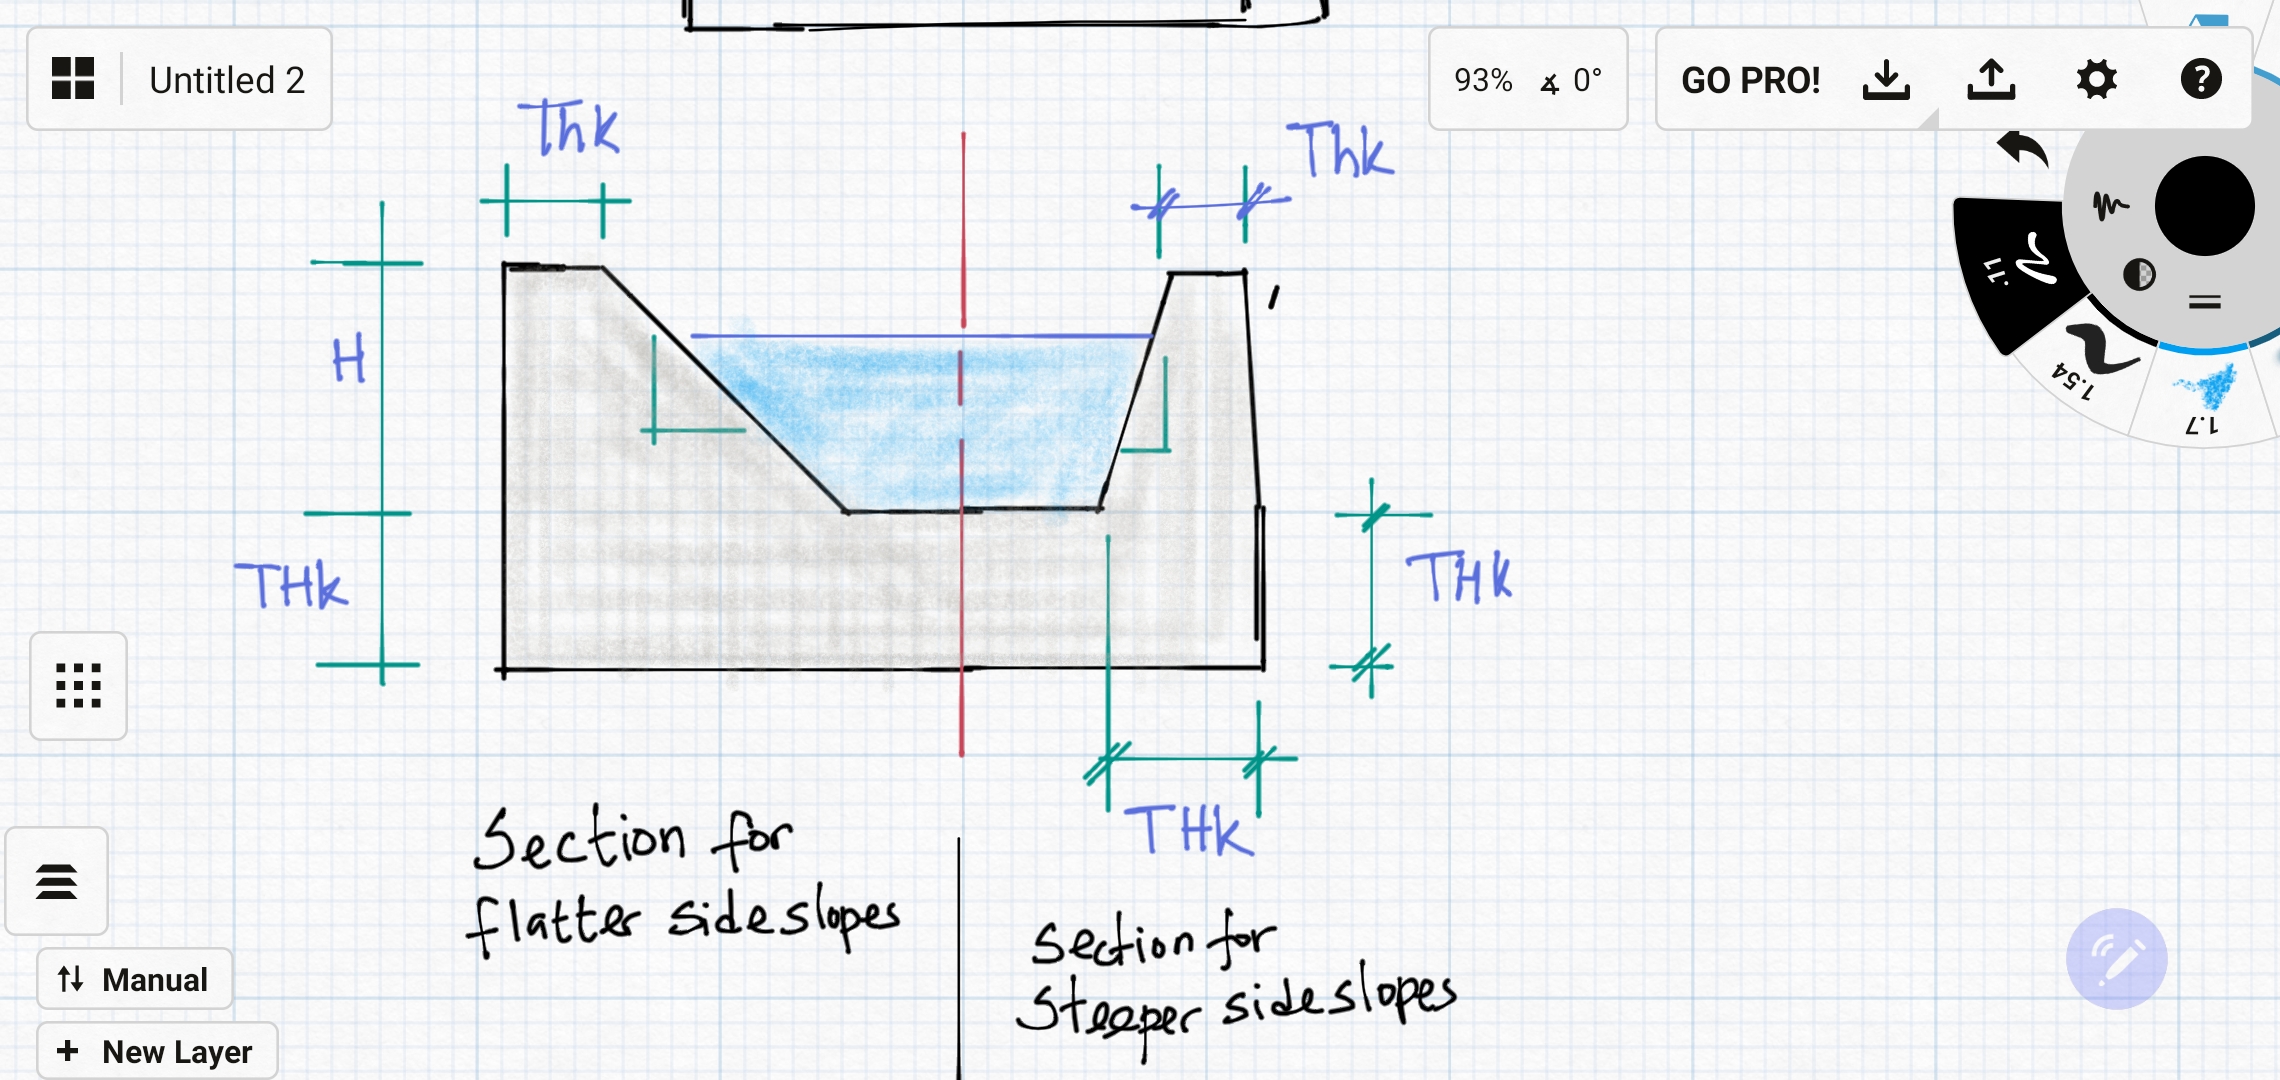 Untitled 2
93% 0°
GO PRO!
Thk
Thk
H
THk
THk
THk
Section for
flatter sideslopes
Section for
Steeper sideslopes
11.
1.54
1.7
Manual
+ New Layer